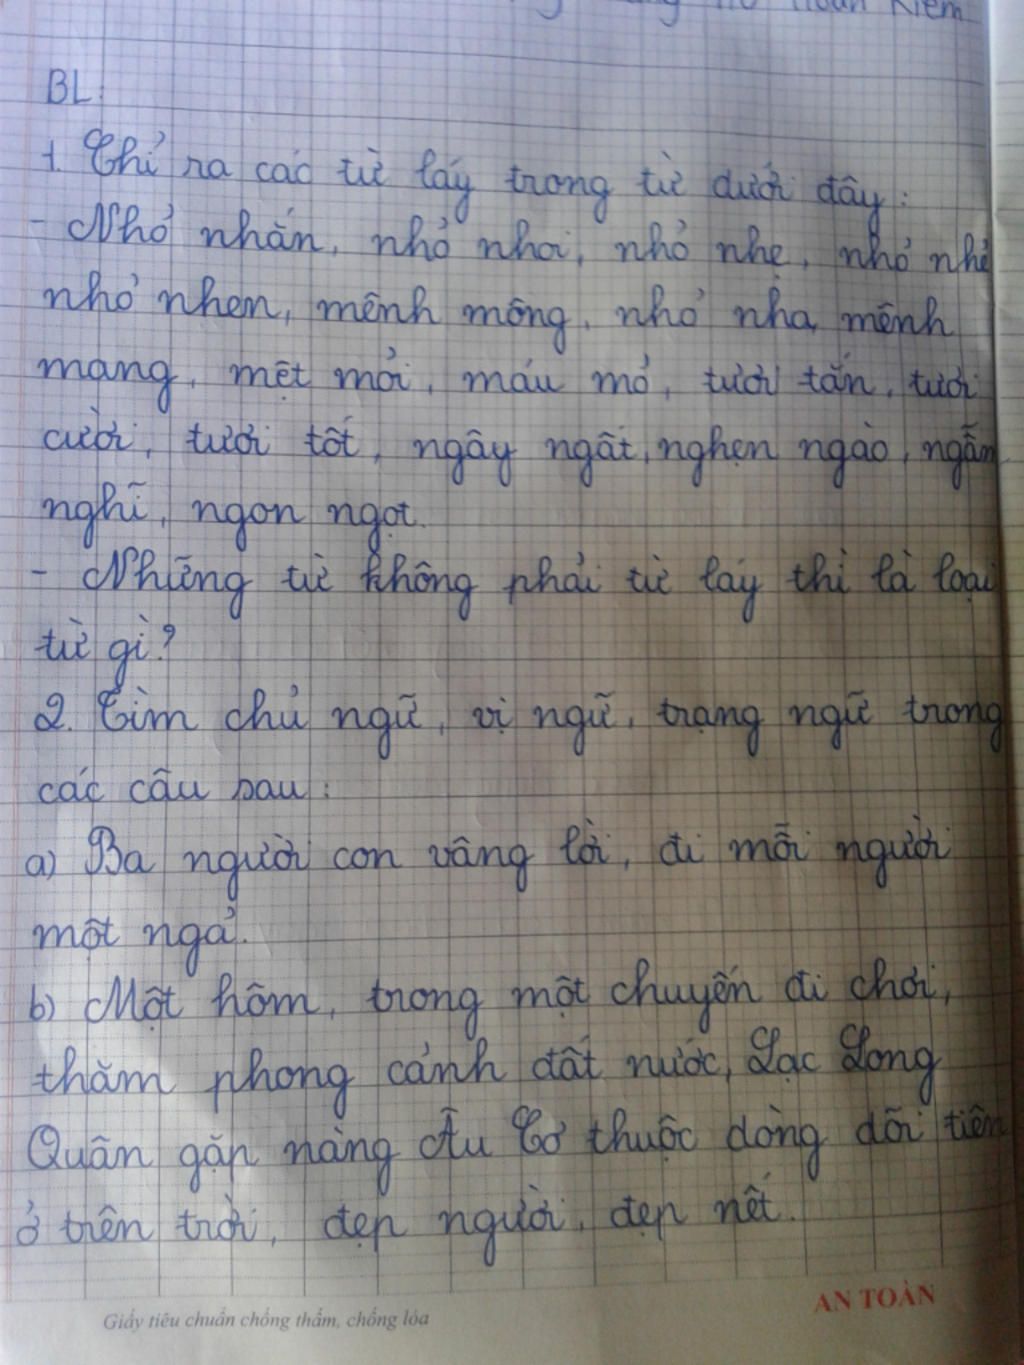 Hoàn Kiếm
BL:
1. Chỉ ra các từ láy trong từ dưới đây:
- Nhỏ nhắn, nhỏ nhoi, nhỏ nhẹ, nhỏ
nhỏ nhen, mênh mông, nhỏ nha, mênh
mang, mệt mỏi, máu mỏ, tươi tắn, tươi
cười, tươi tốt, ngây ngất, nghẹn ngào, ngẫm
nghĩ, ngon ngọt.
- Những từ không phải từ láy thì là loại
từ gì?
2. Tìm chủ ngữ, vị ngữ, trạng ngữ trong
các câu sau:
a) Ba người con vâng lời, đi mỗi người
một ngả.
b) Một hôm, trong một chuyến đi chơi,
thăm phong cảnh đất nước, Lạc Long
Quân gặp nàng Âu Cơ thuộc dòng dõi tiên
ở trên trời, đẹp người, đẹp nết.
Giấy tiêu chuẩn chống thấm, chống lóa
AN TOÀN